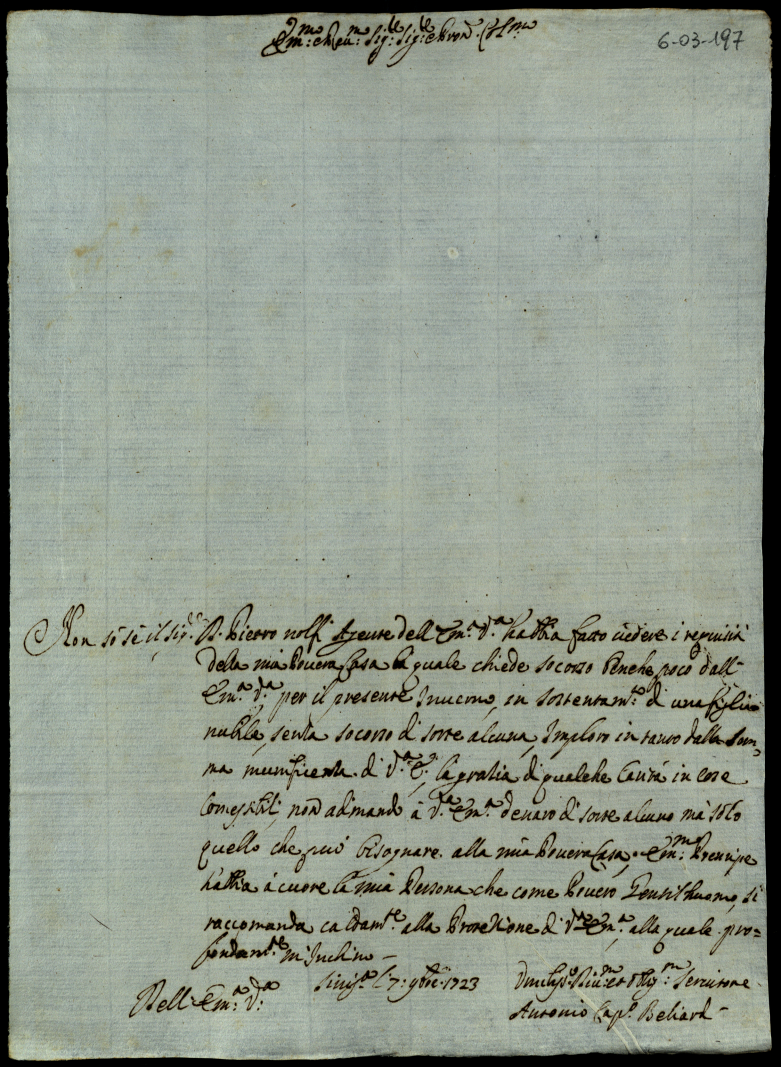 Em:mo e Reu:mo Sig:r Sig:r e Pron Col:mo
6-03-197
Non sò sè il Sig:r D. Pietro nolfi Agente dell Em:a V:a habbia fatto uedere i requisiti
della mia Pouera Casa la quale chiede socorso benche poco dall
Em:a V:a per il presente Inuerno, in sostentam:to di una figlia
nubile, senza socorso di sorte alcuna, Imploro in tanto dalla som=
ma munificenza di V:a E:, la gratia di qualche Carità in cose
Comestibili, non adimando à V:a Em:a denaro di sorte alcuno mà solo
quello che può bisognare alla mia Pouera Casa, Em:mo Prencipe
habbia à cuore la mia Persona che come Pouero Gentilhuomo, si
raccomanda caldam:te alla Protetione di V:a Em:a, alla quale pro=
fondam:te m'Inchino
Dell Em:a V:a
Sinig:a 7: 9bre 1723
Humiliss:o Diu:mo et Oblig:mo Seruitore
Antonio Cap:o Beliardi